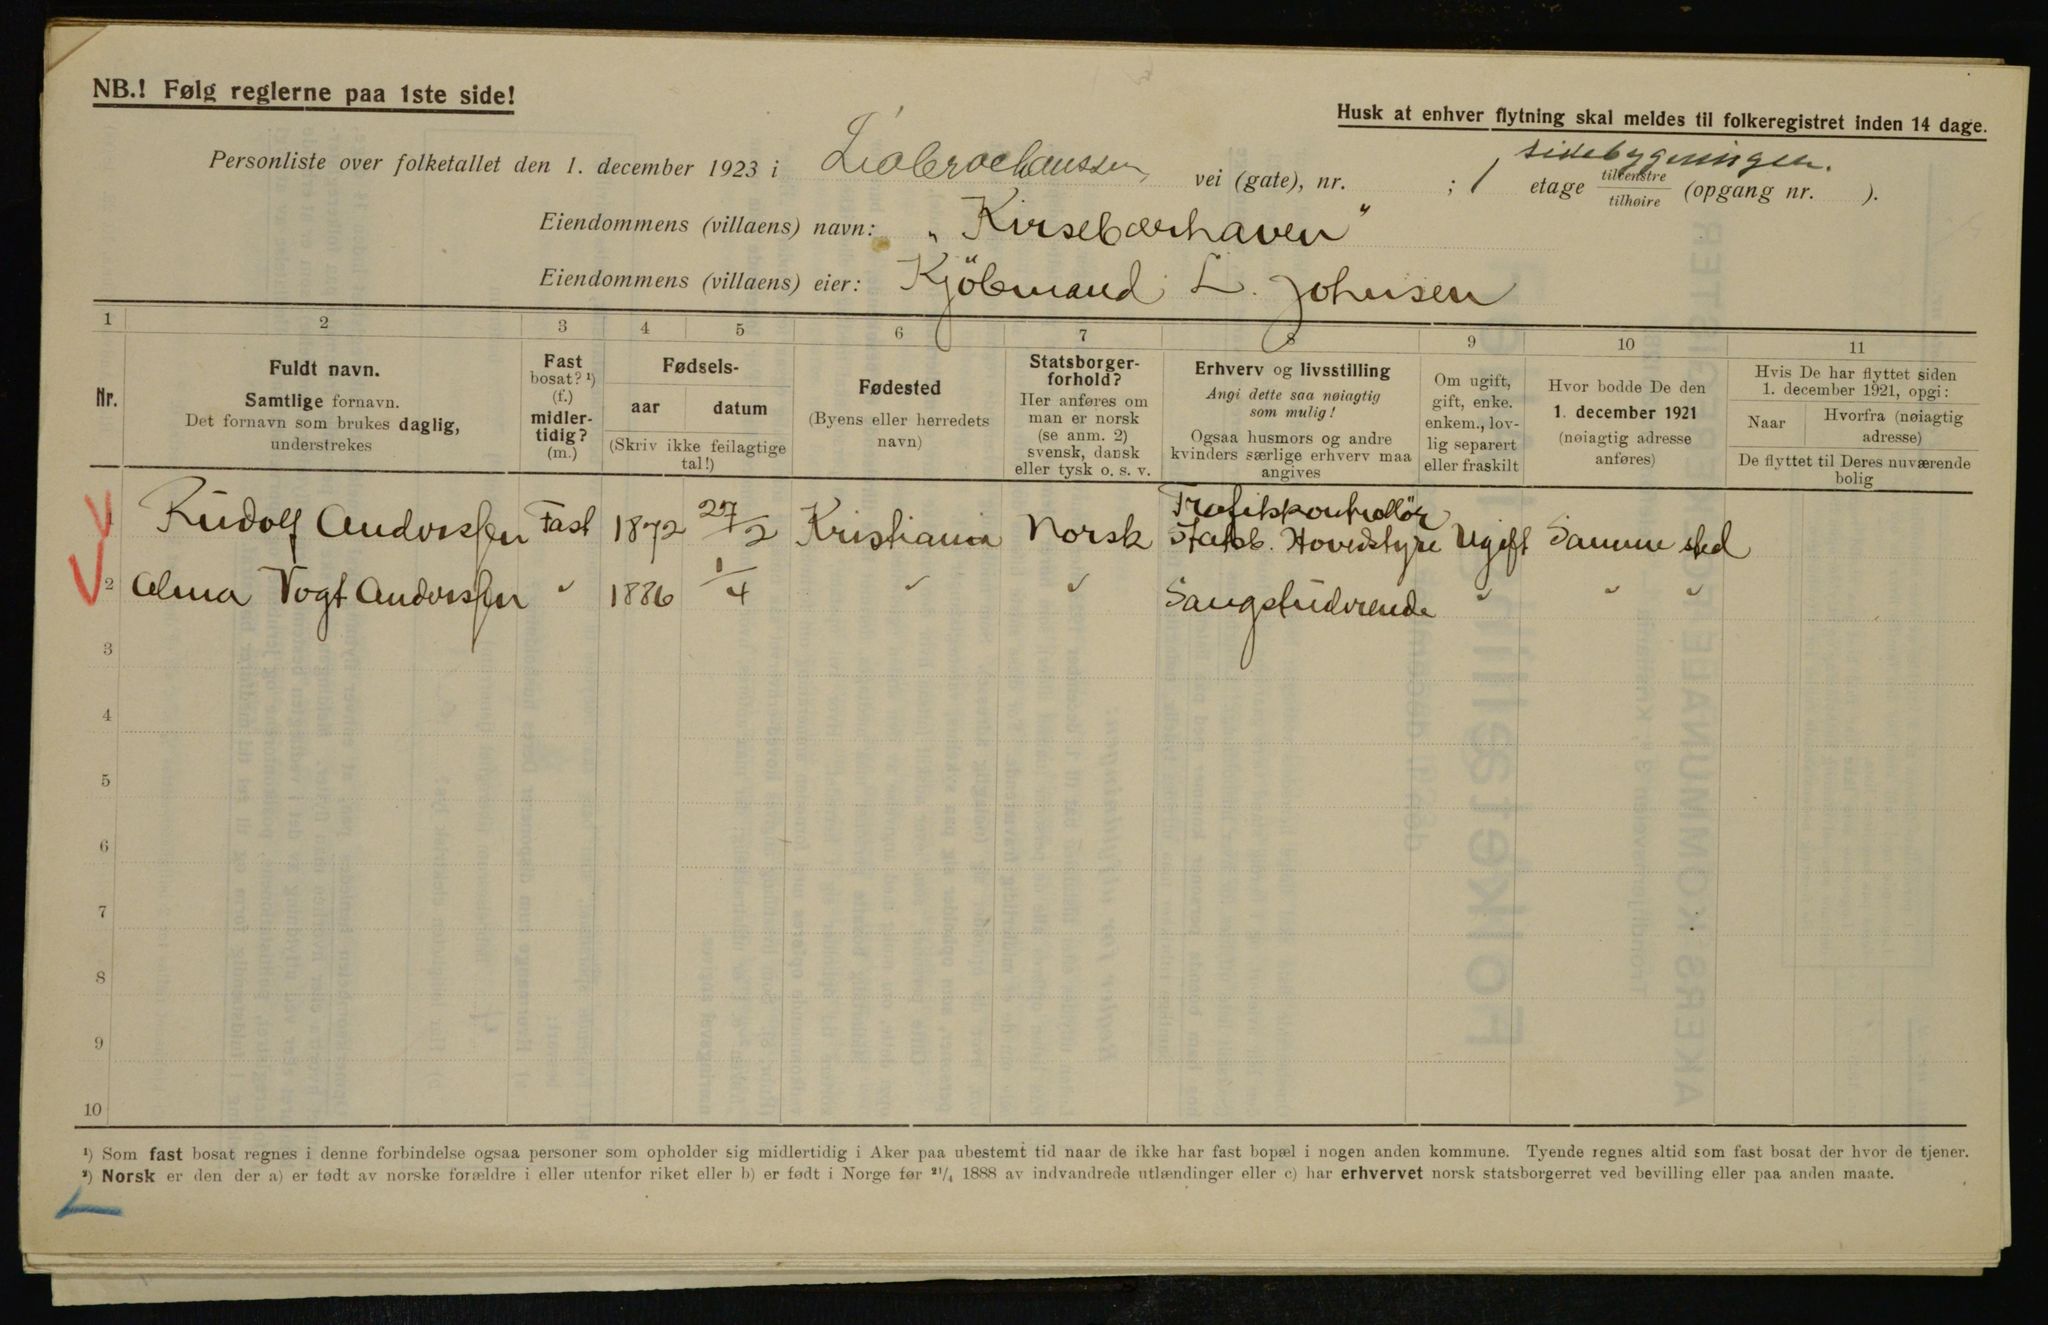 NB.! Følg reglerne paa 1ste side!
Husk at enhver flytning skal meldes til folkeregistret inden 14 dage.
sidebygningen.
Personliste over folketallet den 1. december 1923 i Liabrochaussen vei (gate), nr. ; 1 etage tilvenstre tilhøire (opgang nr. ).
Eiendommens (villaens) navn: „Kirsebærhaven"
Eiendommens (villaens) eier: Kjöbmand L. Johnsen
1 2 3 4 5 6 7 8 9 10 11
Nr.
Fuldt navn.
Samtlige fornavn.
Det fornavn som brukes daglig,
understrekes
Fast
bosat? ¹)
(f.)
midler-
tidig?
(m.)
Fødsels-
aar datum
(Skriv ikke feilagtige
tal!)
Fødested
(Byens eller herredets
navn)
Statsborger-
forhold?
Her anføres om
man er norsk
(se anm. 2)
svensk, dansk
eller tysk o. s. v.
Erhverv og livsstilling
Angi dette saa nøiagtig
som mulig!
Ogsaa husmors og andre
kvinders særlige erhverv maa
angives
Om ugift,
gift, enke.
enkem., lov-
lig separert
eller fraskilt
Hvor bodde De den
1. december 1921
(nøiagtig adresse
anføres)
Hvis De har flyttet siden
1. december 1921, opgi:
Naar
Hvorfra (nøiagtig
adresse)
De flyttet til Deres nuværende
bolig
Trafikkontrollör
1 Rudolf Anderssen Fast 1872 27/2 Kristiania Norsk Statsb. Hovedstyre Ugift Samme sted
2 Alma Vogt Anderssen " 1886 1/4 " " Sangstuderende " " "
3
4
5
6
7
8
9
10
¹) Som fast bosat regnes i denne forbindelse ogsaa personer som opholder sig midlertidig i Aker paa ubestemt tid naar de ikke har fast bopæl i nogen anden kommune. Tyende regnes altid som fast bosat der hvor de tjener.
²) Norsk er den der a) er født av norske forældre i eller utenfor riket eller b) er født i Norge før 21/4 1888 av indvandrede utlændinger eller c) har erhvervet norsk statsborgerret ved bevilling eller paa anden maate.